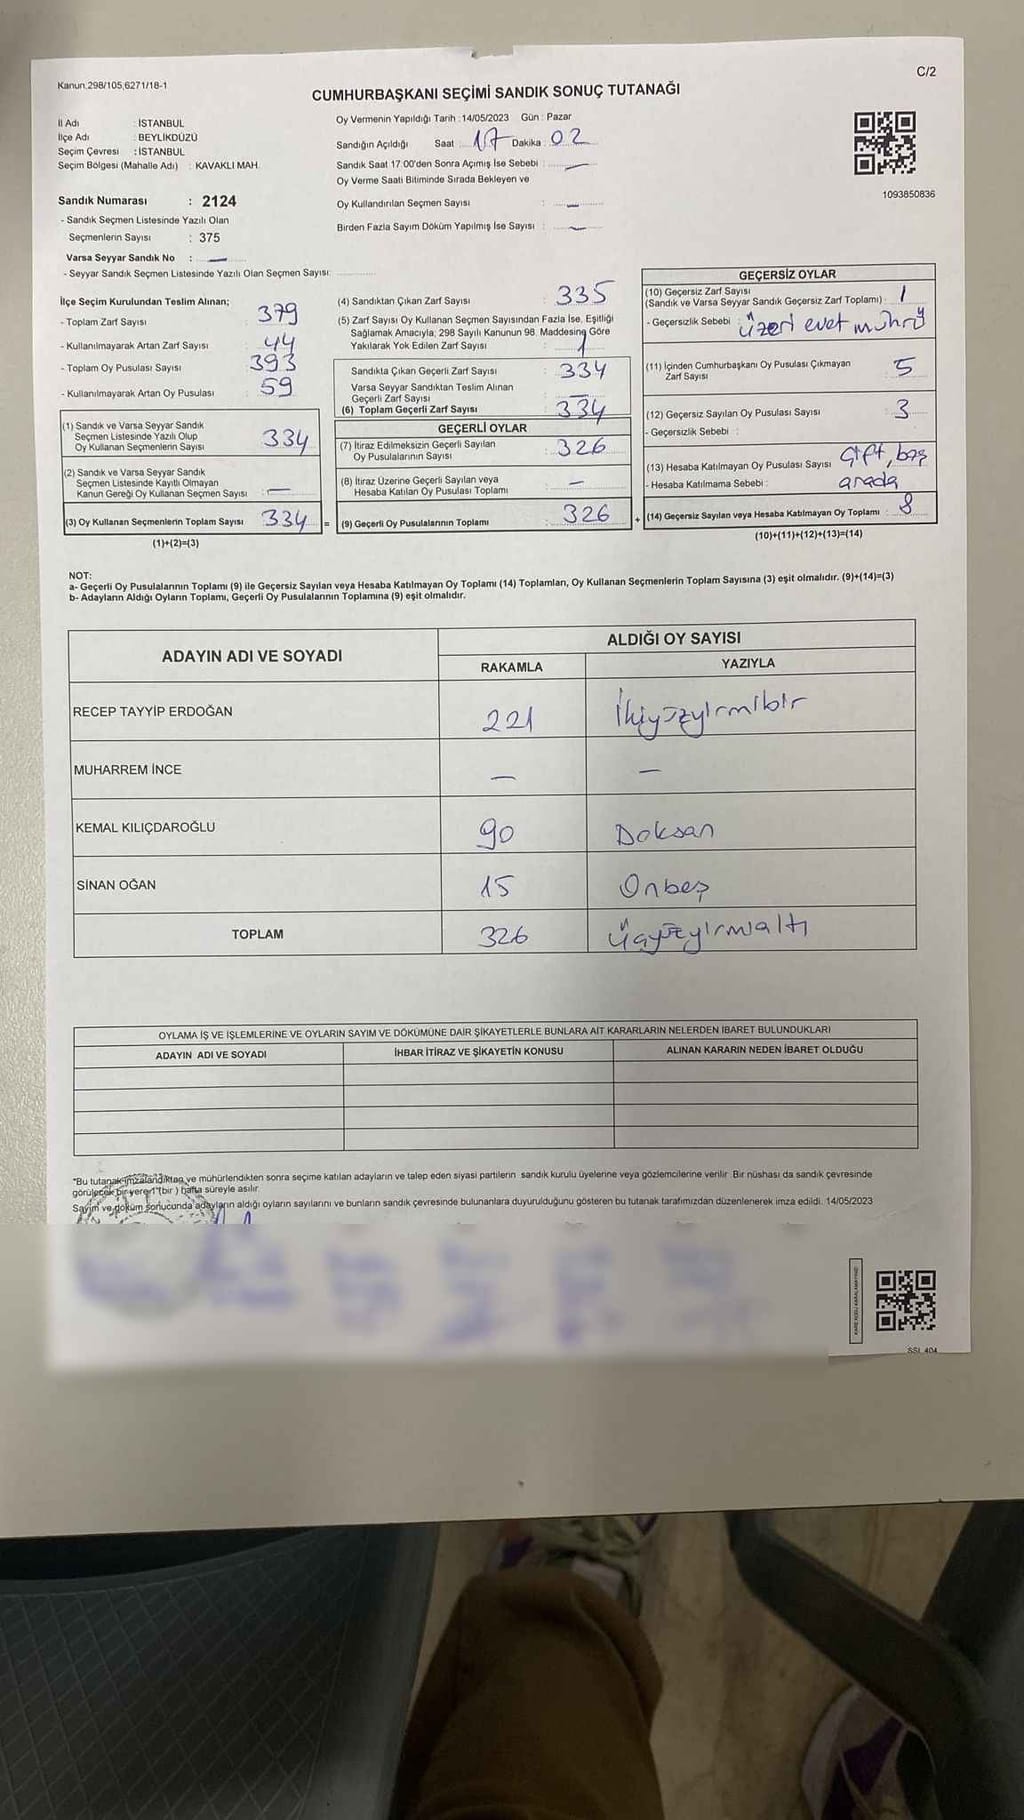 Kanun.298/105,6271/18-1
C/2
CUMHURBAŞKANI SEÇİMİ SANDIK SONUÇ TUTANAĞI
İl Adı : İSTANBUL
İlçe Adı : BEYLİKDÜZÜ
Seçim Çevresi : İSTANBUL
Seçim Bölgesi (Mahalle Adı) : KAVAKLI MAH.
Sandık Numarası : 2124
- Sandık Seçmen Listesinde Yazılı Olan
Seçmenlerin Sayısı : 375
Varsa Seyyar Sandık No : —
- Seyyar Sandık Seçmen Listesinde Yazılı Olan Seçmen Sayısı:
Oy Vermenin Yapıldığı Tarih : 14/05/2023 Gün : Pazar
Sandığın Açıldığı Saat 17 Dakika 02
Sandık Saat 17.00'den Sonra Açımış İse Sebebi : —
Oy Verme Saati Bitiminde Sırada Bekleyen ve
Oy Kullandırılan Seçmen Sayısı : —
Birden Fazla Sayım Döküm Yapılmış İse Sayısı : —
1093850836
İlçe Seçim Kurulundan Teslim Alınan;
- Toplam Zarf Sayısı : 379
- Kullanılmayarak Artan Zarf Sayısı : 44
- Toplam Oy Pusulası Sayısı : 393
- Kullanılmayarak Artan Oy Pusulası : 59
(1) Sandık ve Varsa Seyyar Sandık
Seçmen Listesinde Yazılı Olup
Oy Kullanan Seçmenlerin Sayısı 334
(2) Sandık ve Varsa Seyyar Sandık
Seçmen Listesinde Kayıtlı Olmayan
Kanun Gereği Oy Kullanan Seçmen Sayısı —
(3) Oy Kullanan Seçmenlerin Toplam Sayısı 334 =
(1)+(2)=(3)
(4) Sandıktan Çıkan Zarf Sayısı : 335
(5) Zarf Sayısı Oy Kullanan Seçmen Sayısından Fazla İse, Eşitliği
Sağlamak Amacıyla, 298 Sayılı Kanunun 98. Maddesine Göre
Yakılarak Yok Edilen Zarf Sayısı : 1
Sandıkta Çıkan Geçerli Zarf Sayısı : 334
Varsa Seyyar Sandıktan Teslim Alınan
Geçerli Zarf Sayısı : —
(6) Toplam Geçerli Zarf Sayısı : 334
GEÇERLİ OYLAR
(7) İtiraz Edilmeksizin Geçerli Sayılan
Oy Pusulalarının Sayısı : 326
(8) İtiraz Üzerine Geçerli Sayılan veya
Hesaba Katılan Oy Pusulası Toplamı : —
(9) Geçerli Oy Pusulalarının Toplamı : 326 +
GEÇERSİZ OYLAR
(10) Geçersiz Zarf Sayısı
(Sandık ve Varsa Seyyar Sandık Geçersiz Zarf Toplamı) : 1
- Geçersizlik Sebebi : üzeri evet mührü
(11) İçinden Cumhurbaşkanı Oy Pusulası Çıkmayan
Zarf Sayısı : 5
(12) Geçersiz Sayılan Oy Pusulası Sayısı : 3
- Geçersizlik Sebebi :
(13) Hesaba Katılmayan Oy Pusulası Sayısı : çift, boş
- Hesaba Katılmama Sebebi : arada
(14) Geçersiz Sayılan veya Hesaba Katılmayan Oy Toplamı : 8
(10)+(11)+(12)+(13)=(14)
NOT:
a- Geçerli Oy Pusulalarının Toplamı (9) ile Geçersiz Sayılan veya Hesaba Katılmayan Oy Toplamı (14) Toplamları, Oy Kullanan Seçmenlerin Toplam Sayısına (3) eşit olmalıdır. (9)+(14)=(3)
b- Adayların Aldığı Oyların Toplamı, Geçerli Oy Pusulalarının Toplamına (9) eşit olmalıdır.
ADAYIN ADI VE SOYADI
ALDIĞI OY SAYISI
RAKAMLA YAZIYLA
RECEP TAYYİP ERDOĞAN 221 İkiyüzyirmibir
MUHARREM İNCE — —
KEMAL KILIÇDAROĞLU 90 Doksan
SİNAN OĞAN 15 Onbeş
TOPLAM 326 Üçyüzyirmialtı
OYLAMA İŞ VE İŞLEMLERİNE VE OYLARIN SAYIM VE DÖKÜMÜNE DAİR ŞİKAYETLERLE BUNLARA AİT KARARLARIN NELERDEN İBARET BULUNDUKLARI
ADAYIN ADI VE SOYADI İHBAR İTİRAZ VE ŞİKAYETİN KONUSU ALINAN KARARIN NEDEN İBARET OLDUĞU
*Bu tutanak imzalandıktan ve mühürlendikten sonra seçime katılan adayların ve talep eden siyasi partilerin sandık kurulu üyelerine veya gözlemcilerine verilir. Bir nüshası da sandık çevresinde
görülecek bir yere 1 (bir) hafta süreyle asılır.
Sayım ve döküm sonucunda adayların aldığı oyların sayılarını ve bunların sandık çevresinde bulunanlara duyurulduğunu gösteren bu tutanak tarafımızdan düzenlenerek imza edildi. 14/05/2023
SSI_404